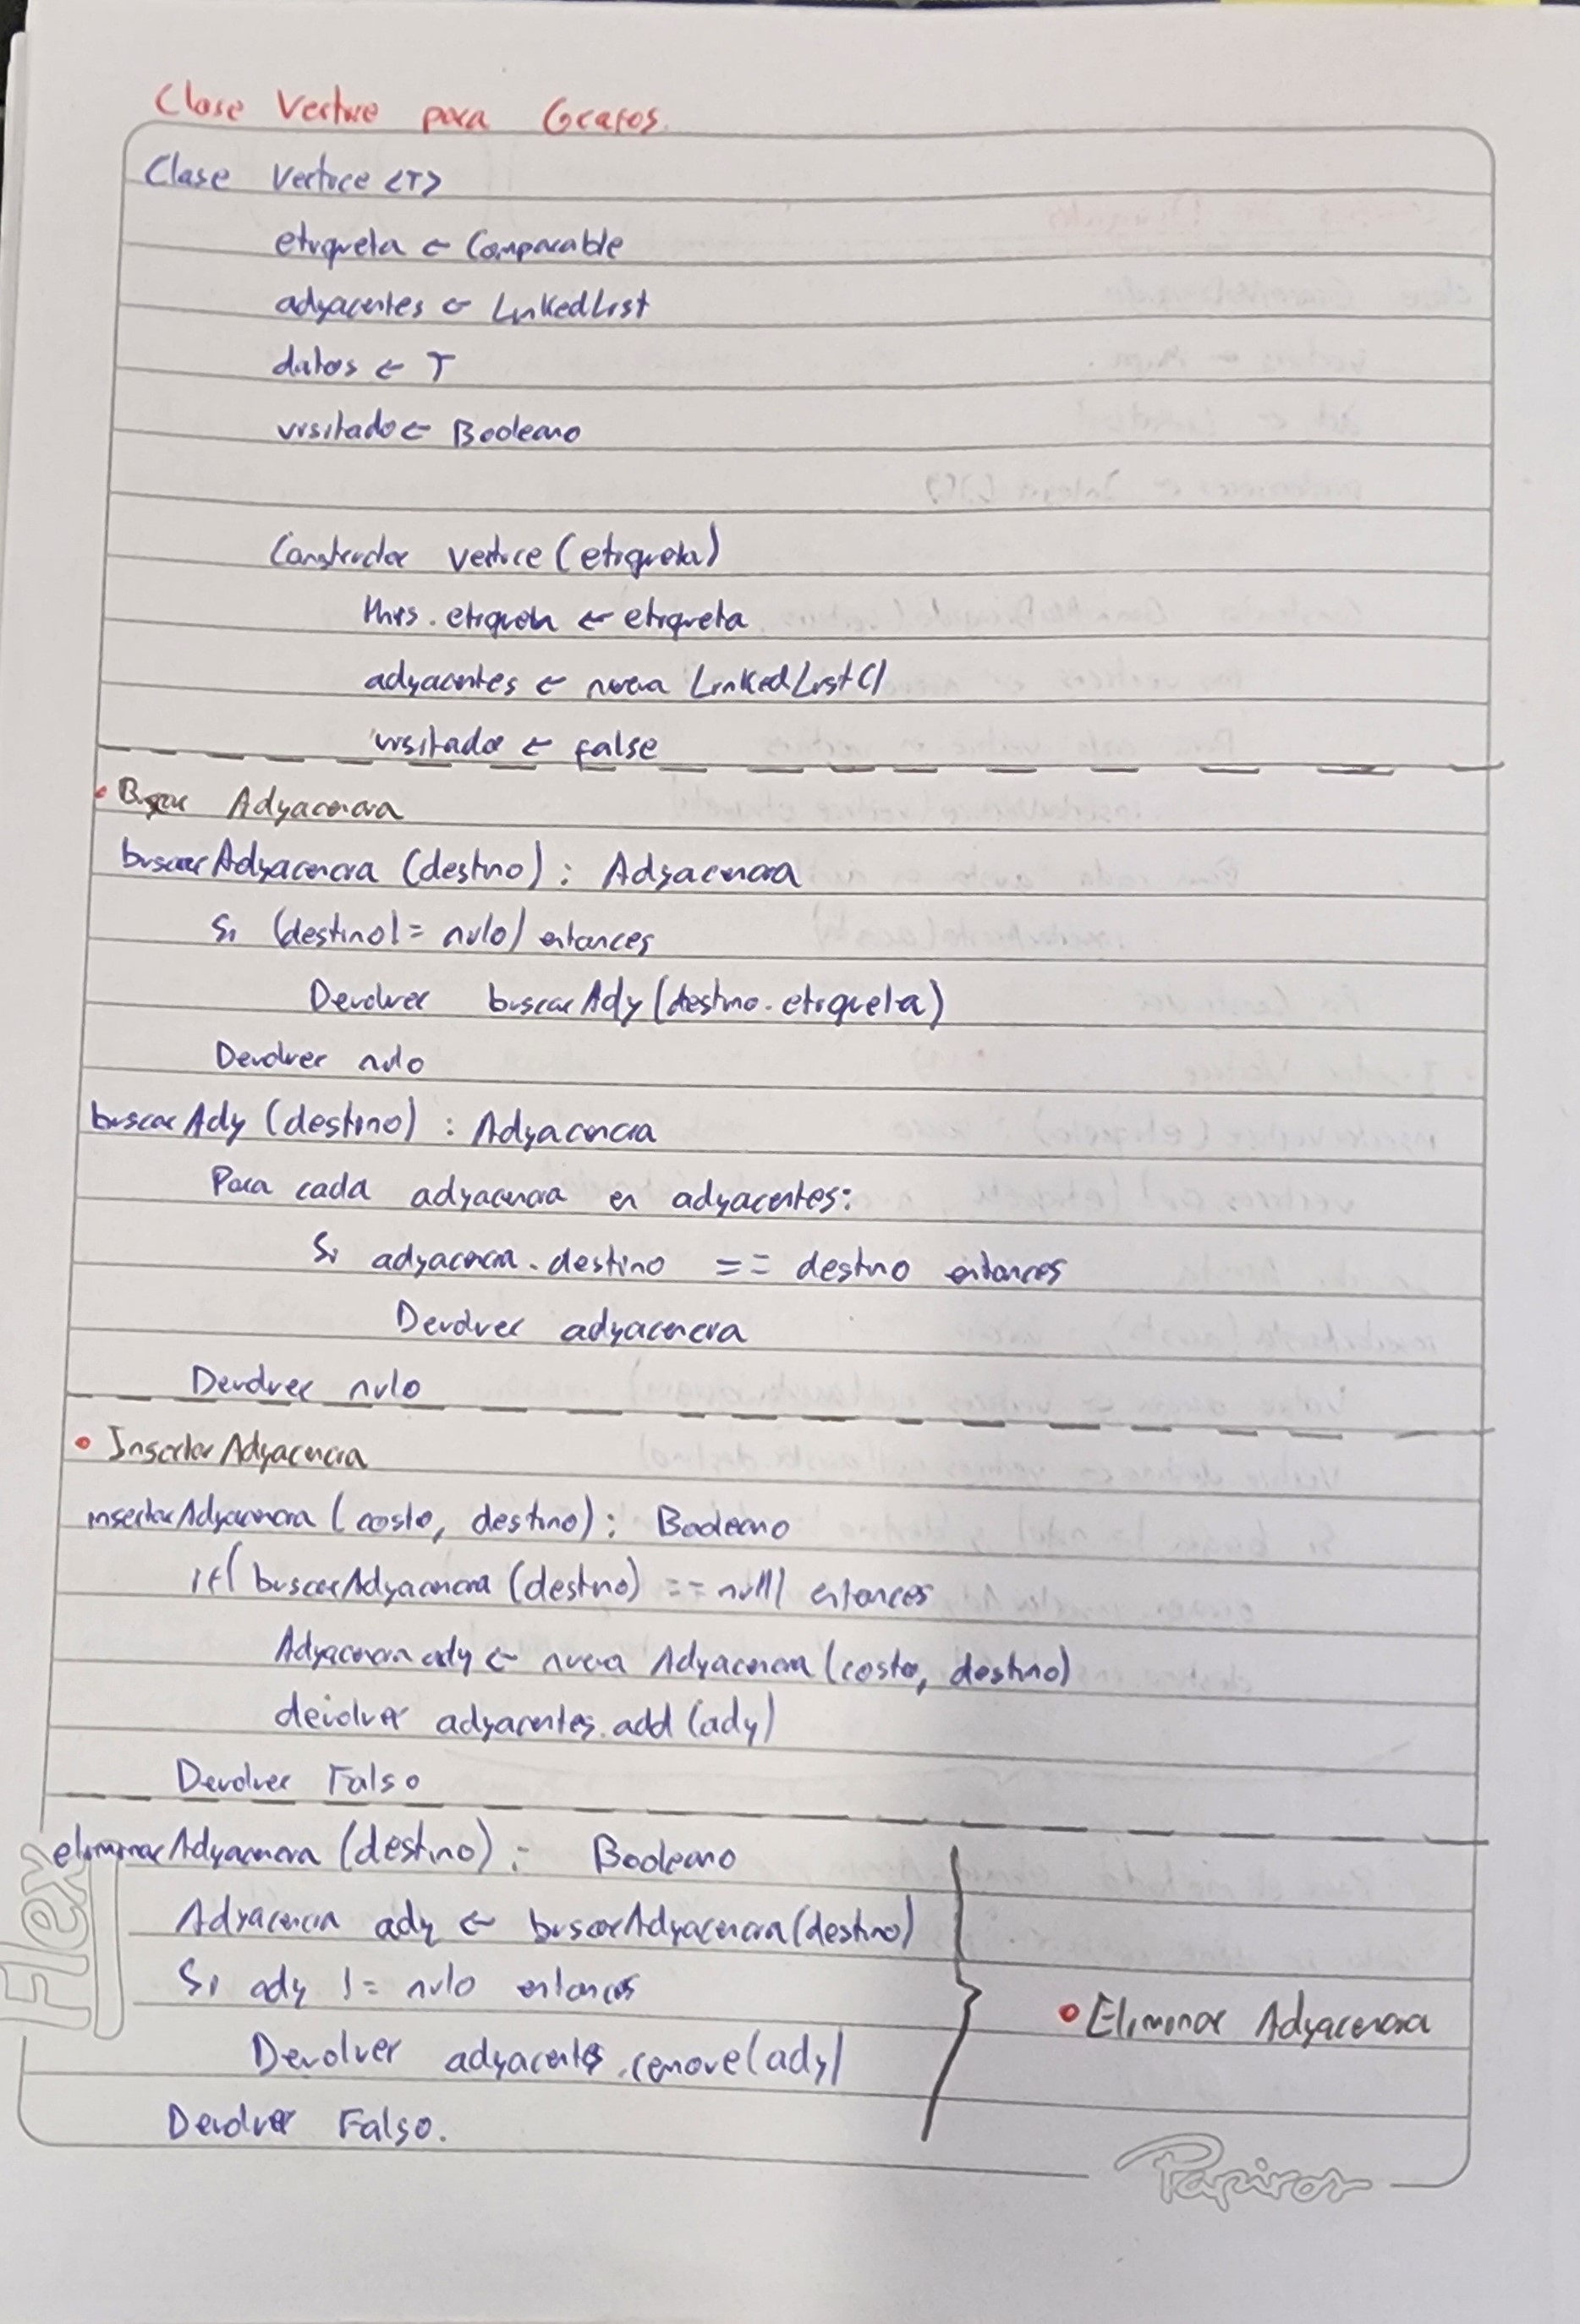 Clase Vertice para Grafos.
Clase Vertice <T>
etiqueta ← Comparable
adyacentes ← LinkedList
datos ← T
visitado ← Booleano
Constructor vertice (etiqueta)
this.etiqueta ← etiqueta
adyacentes ← nueva LinkedList()
visitado ← false
• Buscar Adyacencia
buscarAdyacencia (destino) : Adyacencia
Si (destino != nulo) entonces
Devolver buscarAdy (destino.etiqueta)
Devolver nulo
buscarAdy (destino) : Adyacencia
Para cada adyacencia en adyacentes:
Si adyacencia.destino == destino entonces
Devolver adyacencia
Devolver nulo
• Insertar Adyacencia
insertarAdyacencia (costo, destino) : Booleano
if( buscarAdyacencia (destino) == null) entonces
Adyacencia ady ← nueva Adyacencia (costo, destino)
devolver adyacentes.add (ady)
Devolver Falso
eliminarAdyacencia (destino) : Booleano
Adyacencia ady ← buscarAdyacencia(destino)
Si ady != nulo entonces
Devolver adyacentes.remove(ady)
Devolver Falso.
• Eliminar Adyacencia
Flex
Papiros